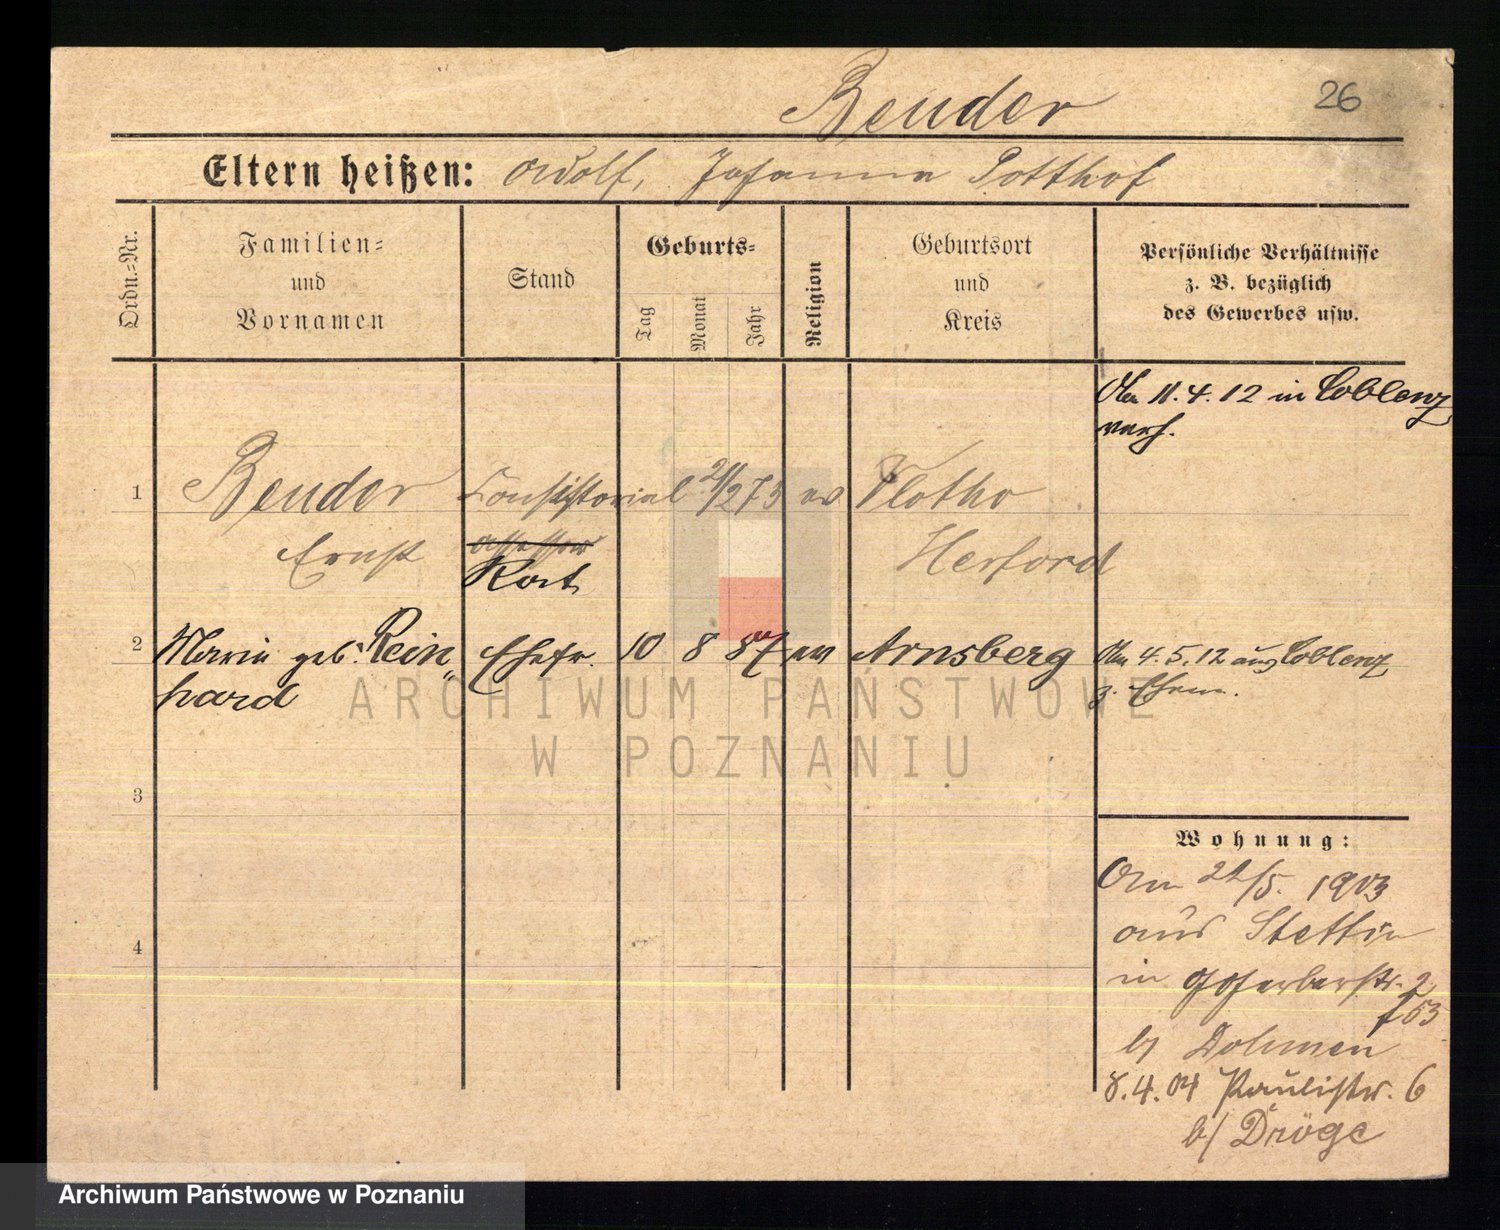 Bender
26
Eltern heißen: Adolf, Johanna Potthof
Ordn.=Nr.
Familien=
und
Vornamen
Stand
Geburts=
Tag
Monat
Jahr
Religion
Geburtsort
und
Kreis
Persönliche Verhältnisse
z. B. bezüglich
des Gewerbes usw.
Am 11.4.12 in Coblenz
verh.
1 Bender Consistorial 21/2 75 ev Vlotho
Ernst assessor Herford
Rat
2 Marie geb. Rein Ehefr. 10 8 87 ev Arnsberg Am 4.5.12 aus Coblenz
hard z. Ehem.
ARCHIWUM PAŃSTWOWE
W POZNANIU
3
Wohnung:
Am 22/5. 1903
aus Stettin
in 2
f 53
4
b/ Dohmen
8.4.04 Paulistr. 6
b/ Dröge
Archiwum Państwowe w Poznaniu